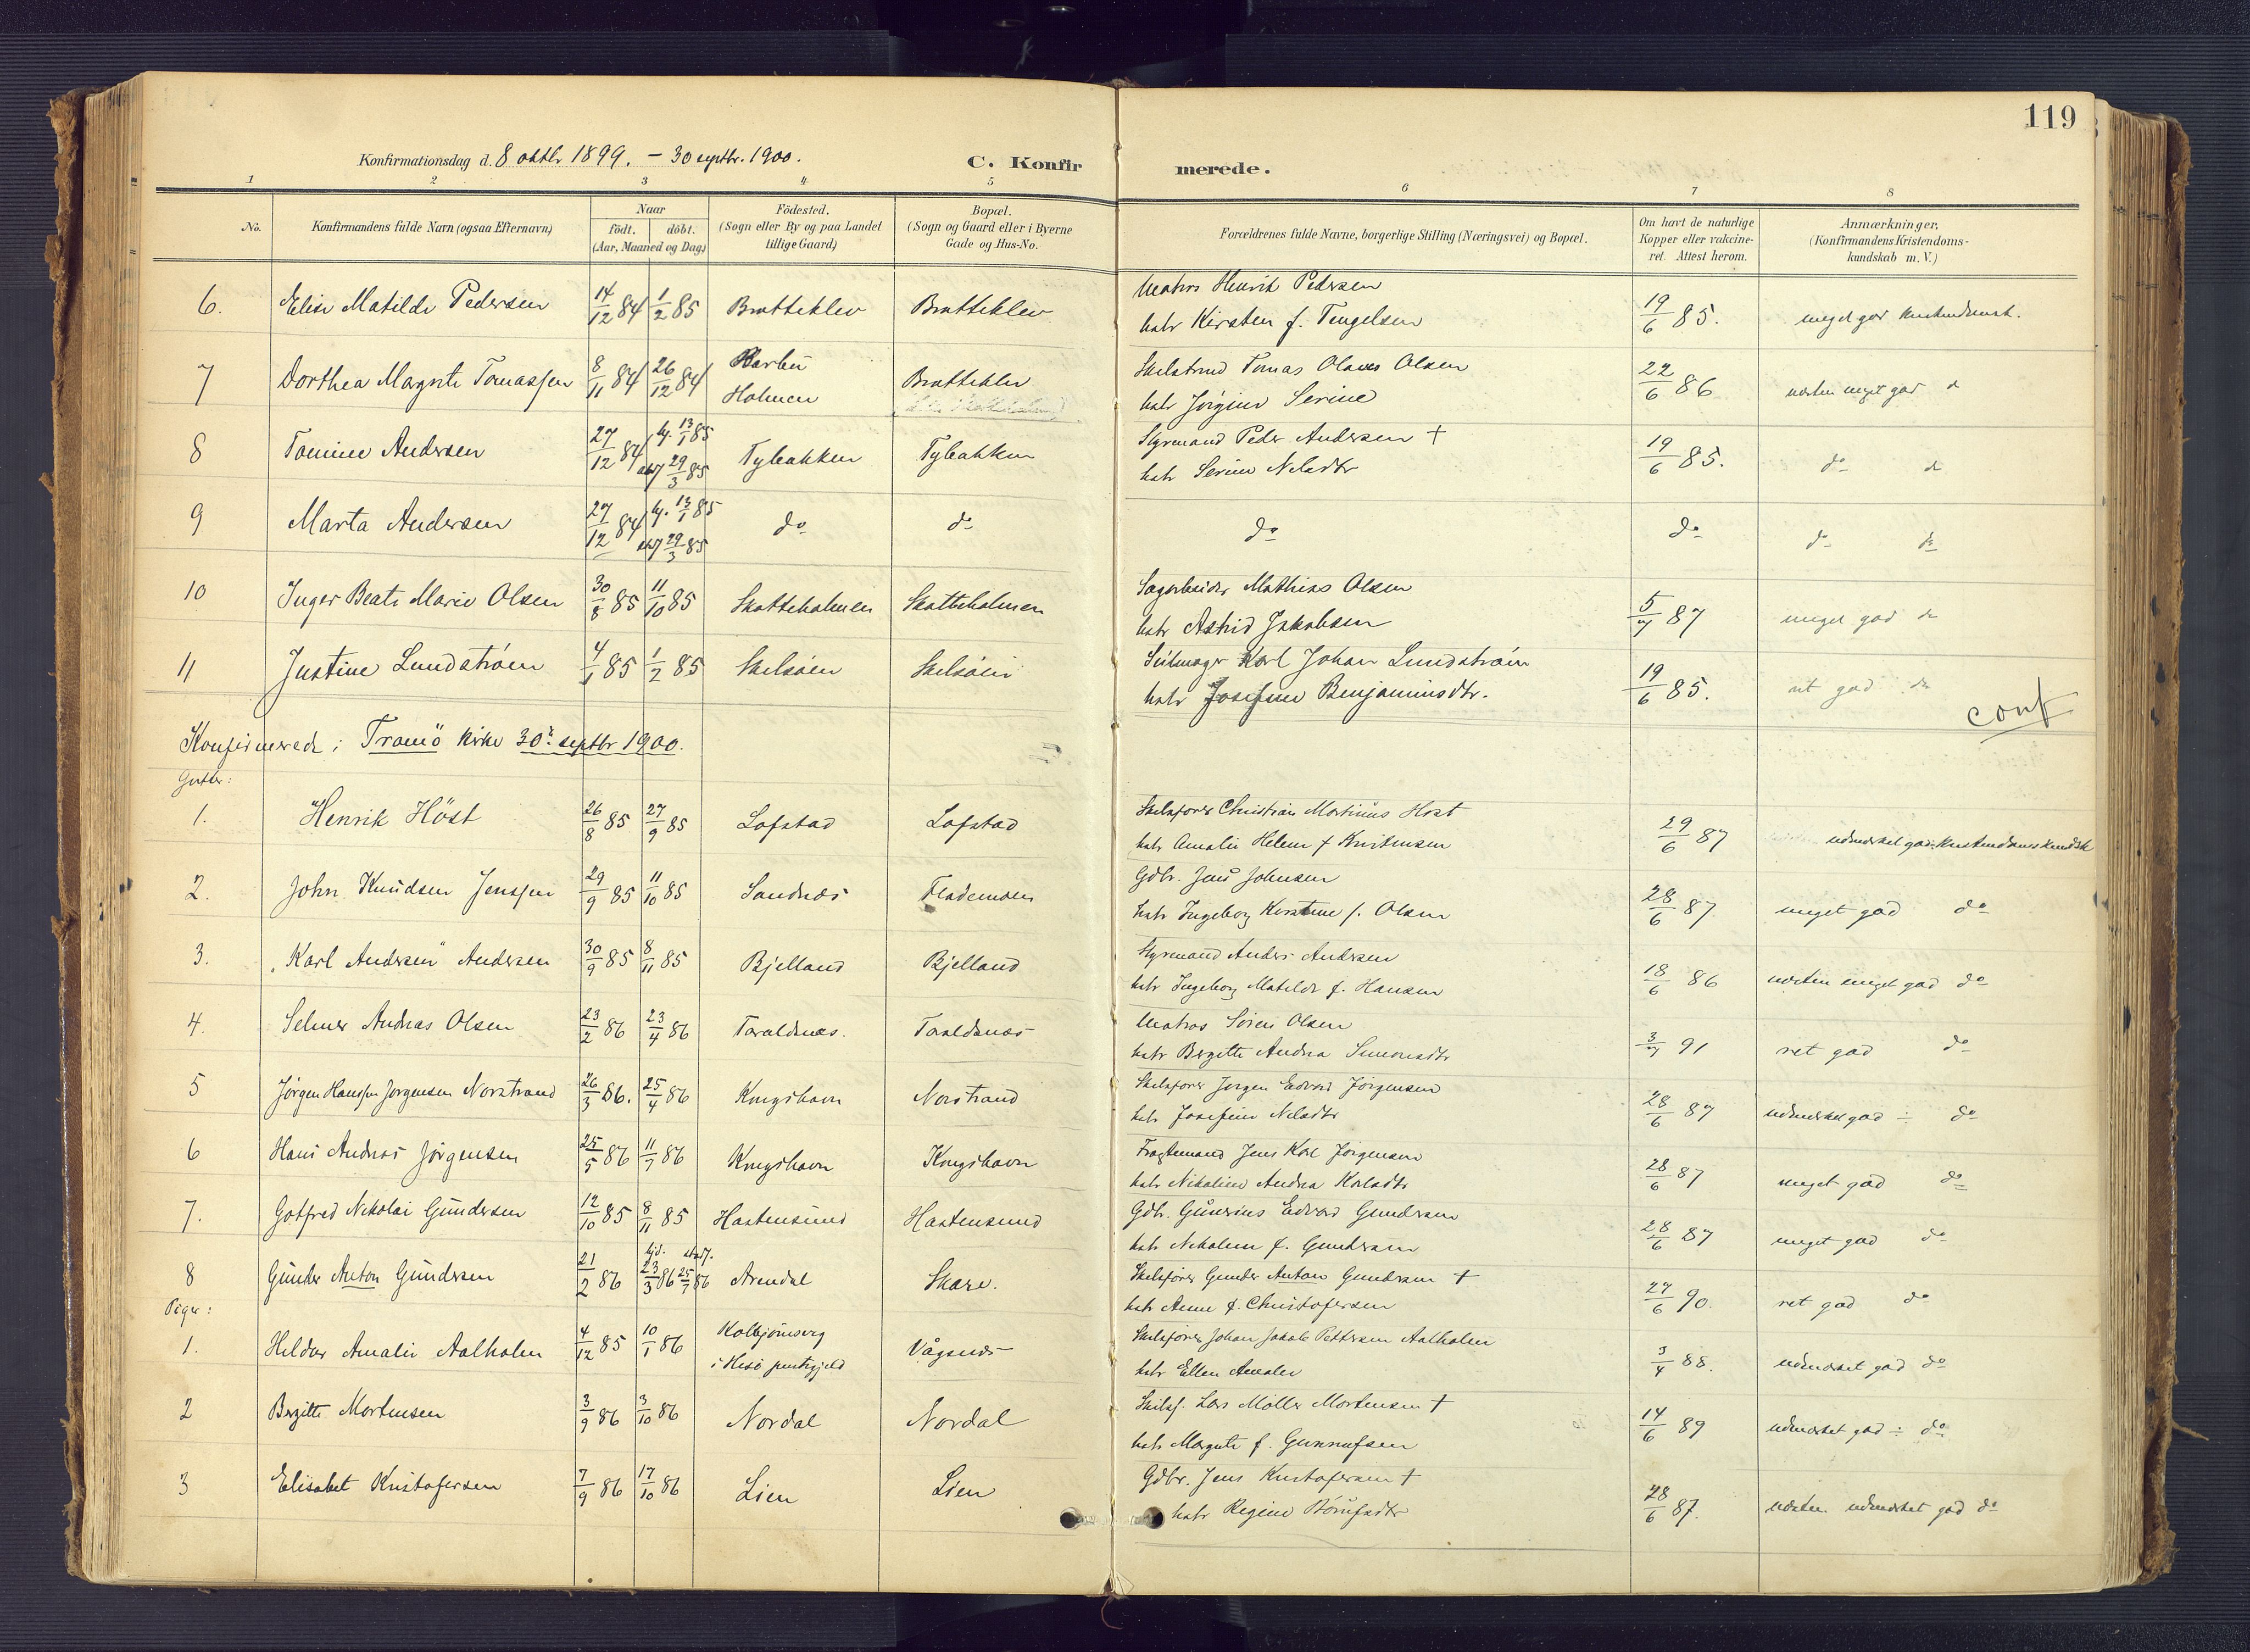 119
Konfirmationsdag d. 8 oktbr 1899. – 30 septbr. 1900.
C. Konfirmerede.
1 2 3 4 5 6 7 8
No.
Konfirmandens fulde Navn (ogsaa Efternavn)
Naar
födt. döbt.
(Aar, Maaned og Dag)
Födested.
(Sogn eller By og paa Landet
tillige Gaard)
Bopæl.
(Sogn og Gaard eller i Byerne
Gade og Hus-No.
Forældrenes fulde Navne, borgerlige Stilling (Næringsvei) og Bopæl.
Om havt de naturlige
Kopper eller vakcine-
ret. Attest herom.
Anmærkninger,
(Konfirmandens Kristendoms-
kundskab m. V.)
6. Elise Matilde Pedersen 14/12 84 1/2 85 Bratteklev Bratteklev
Matros Henrik Pedersen
hstr Kirsten f. Tengelsen
19/6 85. meget god
7 Dorthea Magrete Tomassen 8/11 84 26/12 84 Barbu
Holmen
Bratteklev
Tomas Olaves Olsen
hstr Jörgine Serine
22/6 86 næsten meget god d
8 Tomine Andersen 27/12 84 hj. 13/1 85
29/3 85
Tybakken Tybakken
Styrmand Peder Andersen +
hstr Serine Nelsdtr
19/6 85. do d
9 Marta Andersen 27/12 84 hj. 13/1 85
29/3 85
do do do do do do
10 Inger Beate Marie Olsen 30/8 85 11/10 85 Skotteholmen Skotteholmen
Sagarbeider Mathias Olsen
hstr Astrid Jakobsen
5/7 87 meget god d
11 Justine Lundström 4/1 85 1/2 85 Skilsöen Skilsöen
Seilmager Karl Johan Lundström
hstr Josefine Benjaminsdtr.
19/6 85. ret god do
conf
Konfirmerede i Tromö Kirke 30te septbr 1900.
Gutter:
1. Henrik Höst 26/8 85 27/9 85 Lofstad Lofstad
Skibsförer Christian Martinius Höst
hstr Amalie Helene f Kristensen
29/6 87 udmærket god Kristendomskundsk
2. John Knudsen Jenssen 29/9 85 11/10 85 Sandnæs Flademoen
Gdbr. Jens Johnsen
hstr Ingeborg Kirstine f. Olsen
28/6 87 meget god do
3. "Karl Andersen" Andersen 30/9 85 8/11 85 Bjelland Bjelland
Styrmand Anders Andersen
hstr Ingeborg Matilde f. Hansen
18/6 86 næsten meget god do
4. Selmer Andreas Olsen 23/2 86 23/4 86 Taraldsnæs. Taraldsnæs
Matros Sören Olsen
hstr Bergitte Andrea Simonsdtr
3/7 91 ret god do
5 Jörgen Hanssen Jörgensen Norstrand 26/3 86. 25/4 86 Kongshavn Norstrand
Skibsförer Jörgen Edvard Jörgensen
hstr Josefine Nelsdtr
28/6 87 udmærket god ÷ do
6 Hans Andreas Jörgensen 25/5 86 11/7 86 Kongshavn Kongshavn
Fragtemand Jens Karl Jörgensen
hstr Nikoline Andrea Karlsdtr
28/6 87 meget god do
7. Gotfred Nikolai Gundersen 12/10 85 8/11 85 Hastensund Hastensund
Gdbr. Gunerius Edvard Gundersen
hstr Nikoline f. Gundersen
28/6 87 meget god do
8 Gunder Anton Gundersen 21/2 86 hjd. 23/3 86 stadf. 25/7 86 Arendal Skare.
Skibsförer Gunder Anton Gundersen +
hstr Anne f. Christofersen
27/6 90. ret god do
Piger:
1. Hildur Amalie Aalholm 4/12 85 10/1 86 Kolbjörnsvig
i Hisö prestegjeld
Vågsnæs
Skibsförer Johan Jakob Pettersen Aalholm
hstr Ellen Amalie
3/4 88. udmærket god do
2 Bergitte Mortensen 3/9 86 3/10 86 Nordal Nordal
Skibsf. Lars Möller Mortensen +
hstr Margrete f. Gunnufsen
14/6 89 udmærket god ÷ do
3 Elisabet Kristofersen 7/9 86 17/10 86 Lien Lien
Gdbr. Jens Kristofersen +
hstr Regine
28/6 87. næsten udmærket god do